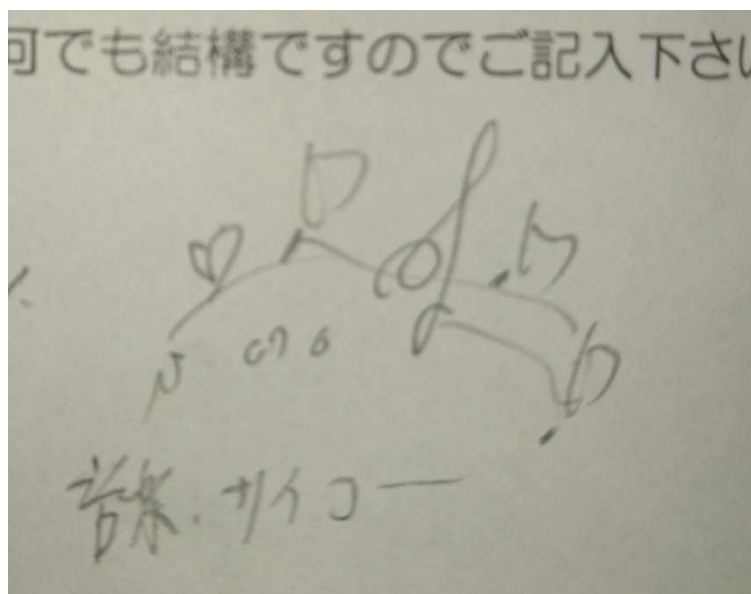 何でも結構ですのでご記入下さい
音楽.サイコー